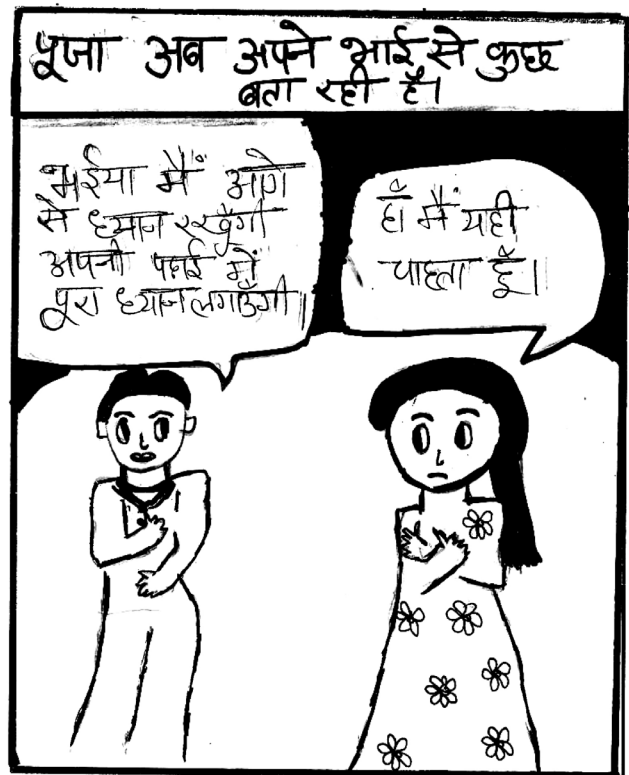 पूजा अब अपने भाई से कुछ
बता रही है।
भईया मैं आगे
से ध्यान रखूँगी
अपनी पढाई में
पूरा ध्यान लगाउँगी।
हाँ मैं यही
चाहता हूँ।